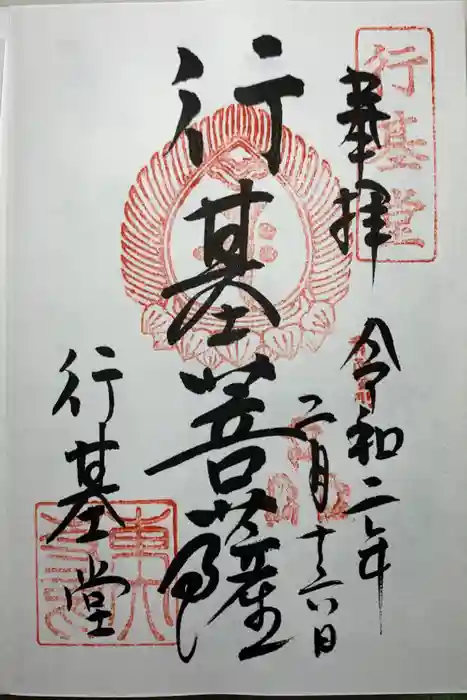 行基堂
奉拝
令和二年
二月十六日
行基菩薩
行基堂